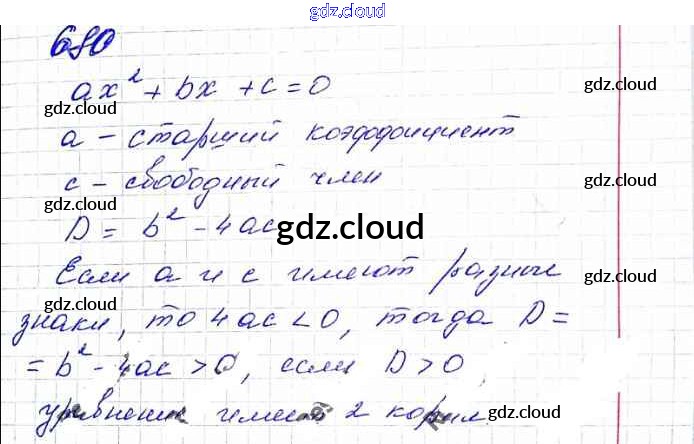 gdz.cloud
680
ax² + bx + c = 0
gdz.cloud
gdz.cloud
a - старший коэффициент
c - свободный член
gdz.cloud
gdz.cloud
D = b² - 4ac
gdz.cloud
Если a и c имеют разные
gdz.cloud
gdz.cloud
знаки, то 4ac < 0, тогда D =
= b² - 4ac > 0, если D > 0,
уравнение имеет 2 корня.
gdz.cloud
gdz.cloud